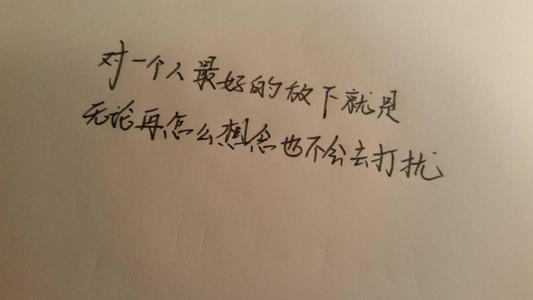 对一个人最好的放下就是
无论再怎么想念也不会去打扰